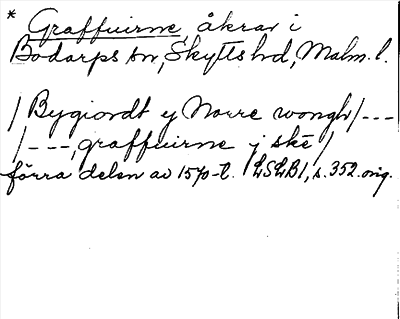 * Graffuirne, åkrar i
Bodarps sn, Skytts hd, Malm. l.
/ Bygiordt y Norre wongh /---
/---, graffuirne y skē /
förra delen av 1570-t. LSLB1, s. 352. orig.